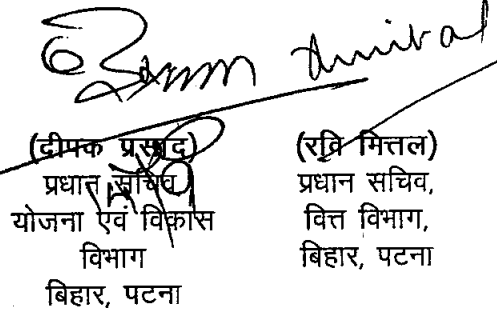 (दीपक प्रसाद)
प्रधान सचिव
योजना एवं विकास
विभाग
बिहार, पटना
(रवि मित्तल)
प्रधान सचिव,
वित्त विभाग,
बिहार, पटना